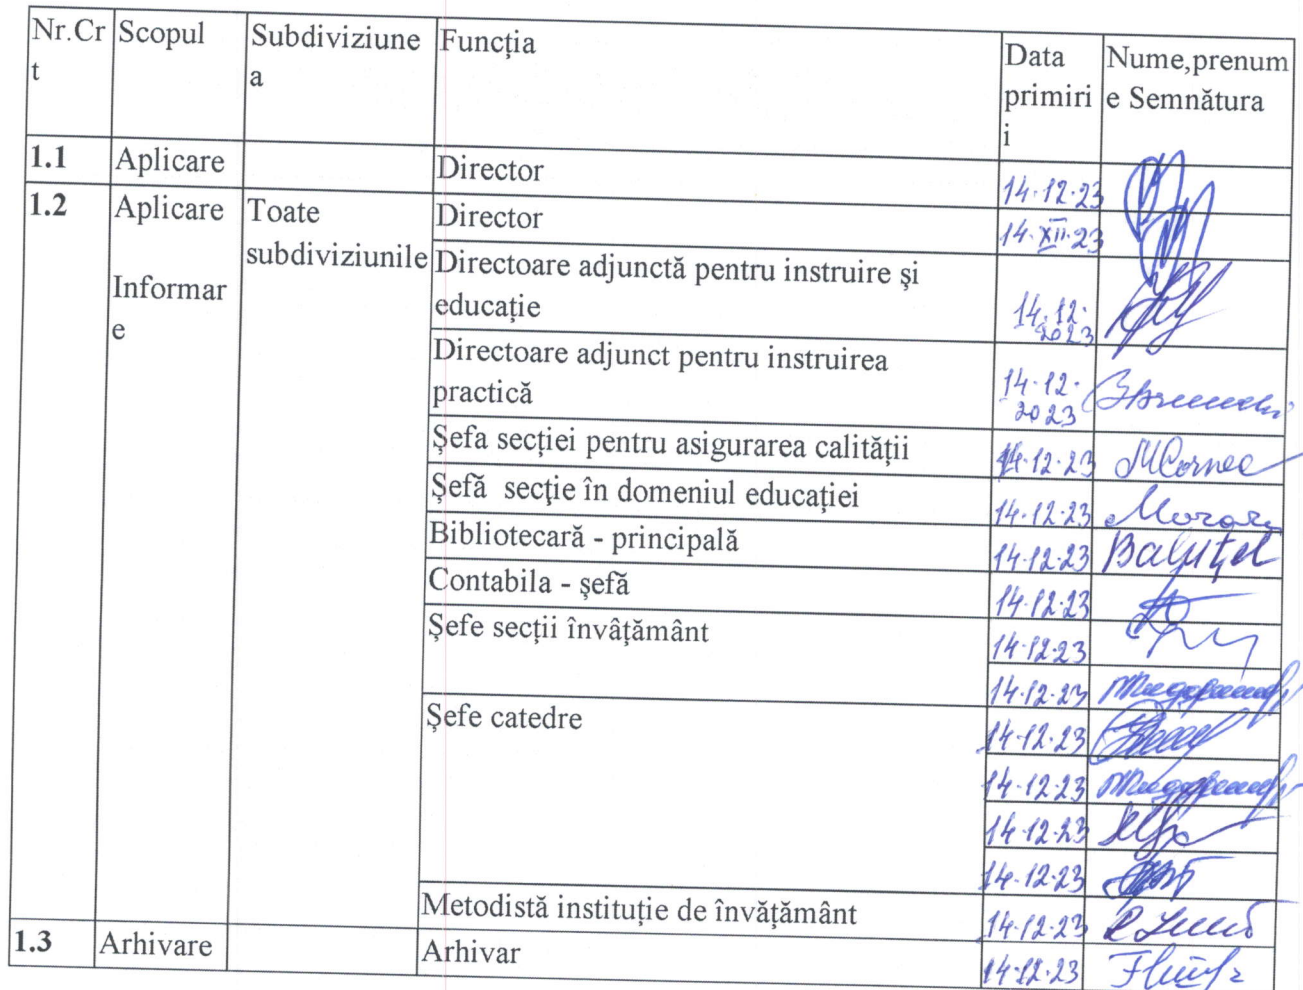 Nr.Cr Scopul Subdiviziune Funcția Data Nume,prenum
t a primiri e Semnătura
i
1.1 Aplicare Director 14.12.23
1.2 Aplicare Toate Director 14.XII.23
subdiviziunile Directoare adjunctă pentru instruire şi
Informar educație 14.12.
e 2023
Directoare adjunct pentru instruirea
practică 14.12.
2023
Şefa secției pentru asigurarea calității 14.12.23 MCornea
Şefă secţie în domeniul educației 14.12.23 Moraru
Bibliotecară - principală 14.12.23 Balițel
Contabila - şefă 14.12.23
Şefe secții învâțământ 14.12.23
14.12.23
Şefe catedre 14.12.23
14.12.23
14.12.23
14.12.23
Metodistă instituție de învățământ 14.12.23
1.3 Arhivare Arhivar 14.12.23